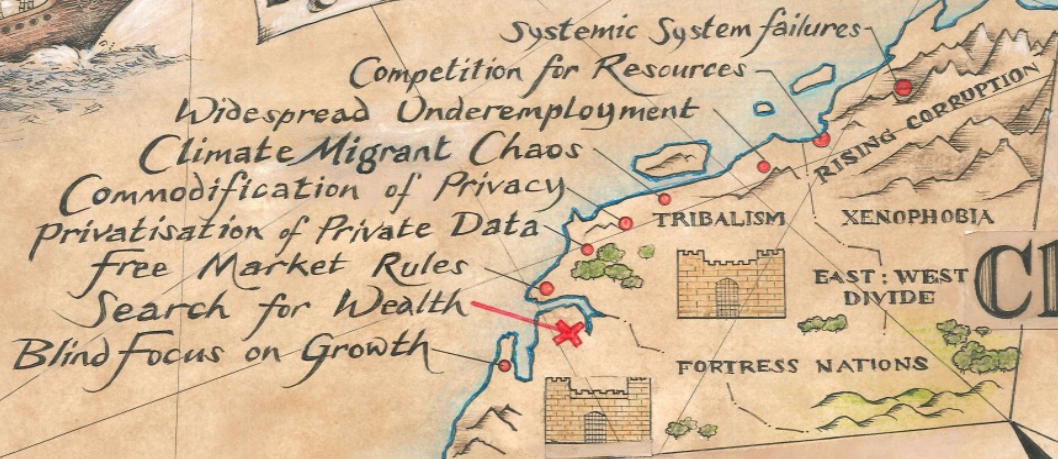 Systemic System failures
Competition for Resources
Widespread Underemployment
Climate Migrant Chaos
Commodification of Privacy
Privatisation of Private Data
Free Market Rules
Search for Wealth
Blind Focus on Growth
RISING CORRUPTION
TRIBALISM
XENOPHOBIA
EAST : WEST
DIVIDE
FORTRESS NATIONS